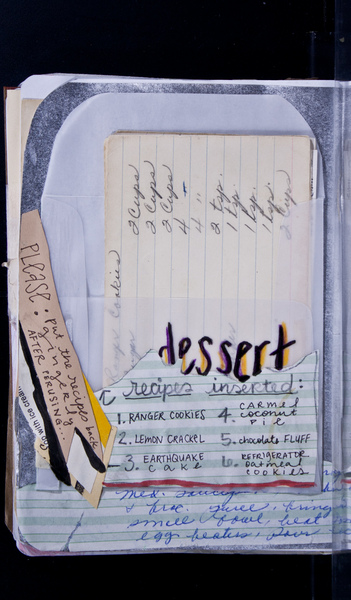 2 Cups
2 Cups
2 Cups
4 "
4 "
2 tsp.
1 tsp.
1 tsp.
1 tsp.
2 Cups
Ranger Cookies
PLEASE: Put the recipes back
gingerly
AFTER PERUSING...
with ice cream
dessert
recipes inserted:
1. RANGER COOKIES
2. LEMON CRACKEL
3. EARTHQUAKE
cake
4. CARMEL
coconut
pie
5. chocolate FLUFF
6. REFRIGERATOR
oatmeal
COOKIES
Med. saucep
& box. Juice, bring
small bowl, beat
egg beater, Pour